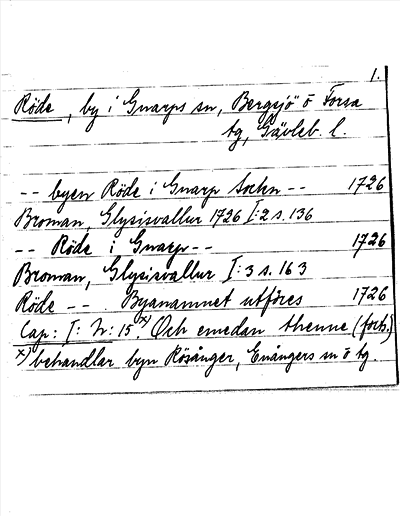 1.
Röde, by i Gnarps sn, Bergsjö o Forsa
tg, Gävleb. l.
-- byen Röde i Gnarp Sochn -- 1726
Broman, Glysisvallur 1726 I:2 s. 136
-- Röde i Gnarp -- 1726
Broman, Glysisvallur I:3 s. 163
Röde -- Byanamnet utföres 1726
Cap: I: N: 15.x) Och emedan thenne (forts.)
x) behandlar byn Rösånger, Enångers sn o tg.